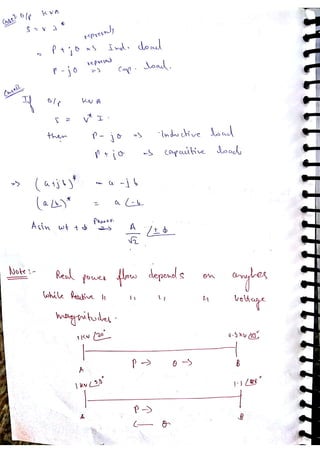 O/p KVA
S = V I*
represents
P + jQ => Ind. load
represent
P - jQ => Cap. load.
If O/p KVA
S = V* I
then P - jQ => Inductive load
P + jQ => Capacitive load
=> (a+jb)* = a - jb
(a∠b)* = a∠-b
Asin wt + ϕ Phasor => A/√2 ∠± ϕ
Note:- Real power flow depends on angles
while Reactive 11 11 11 11 voltage
magnitudes.
A P -> Q -> B
A P -> <- Q B